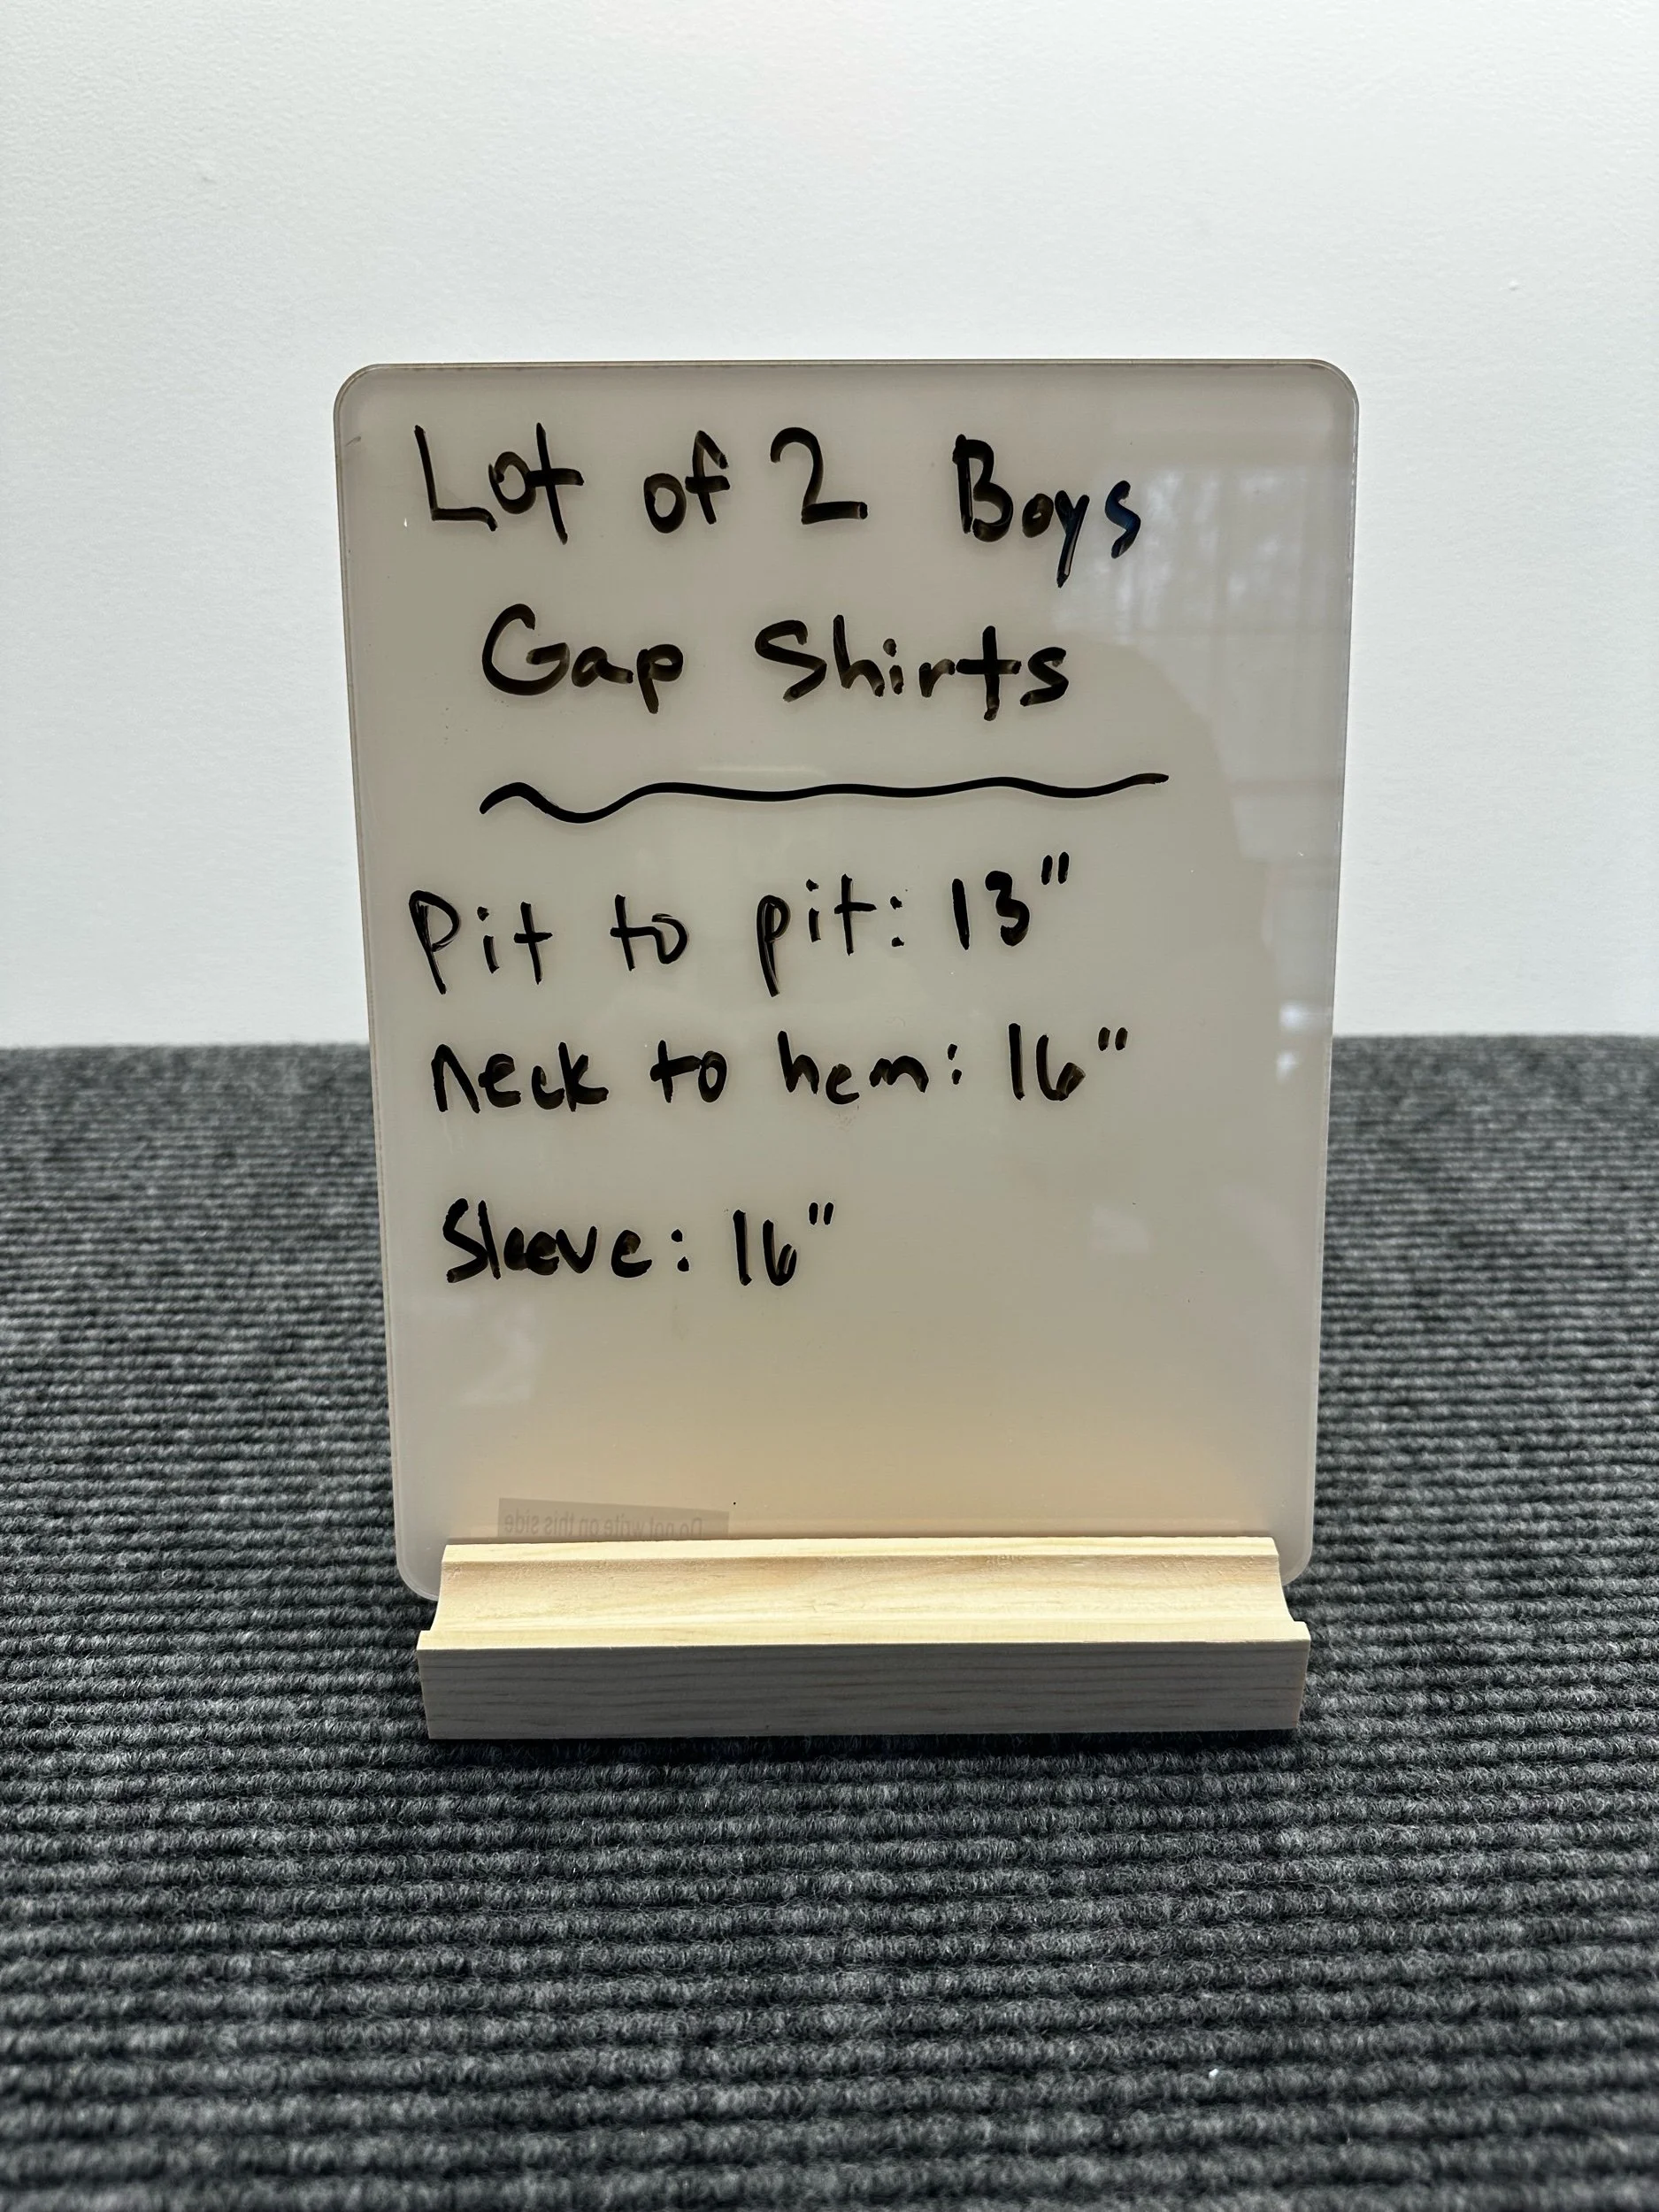 Lot of 2 Boys
Gap Shirts
Pit to pit: 13"
neck to hem: 16"
Sleeve: 16"
Do not write on this side